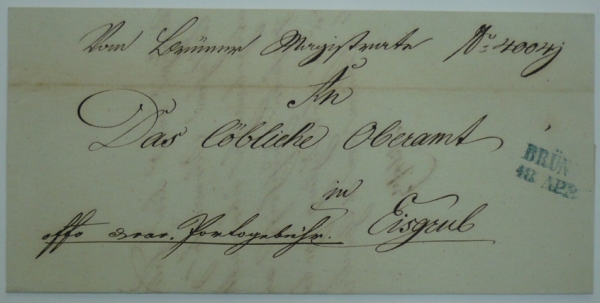 Vom Brünner Magistrate No 4004
An
Das löbliche Oberamt
in
Eisgrub
Portogebühr.
BRÜN
18. APR